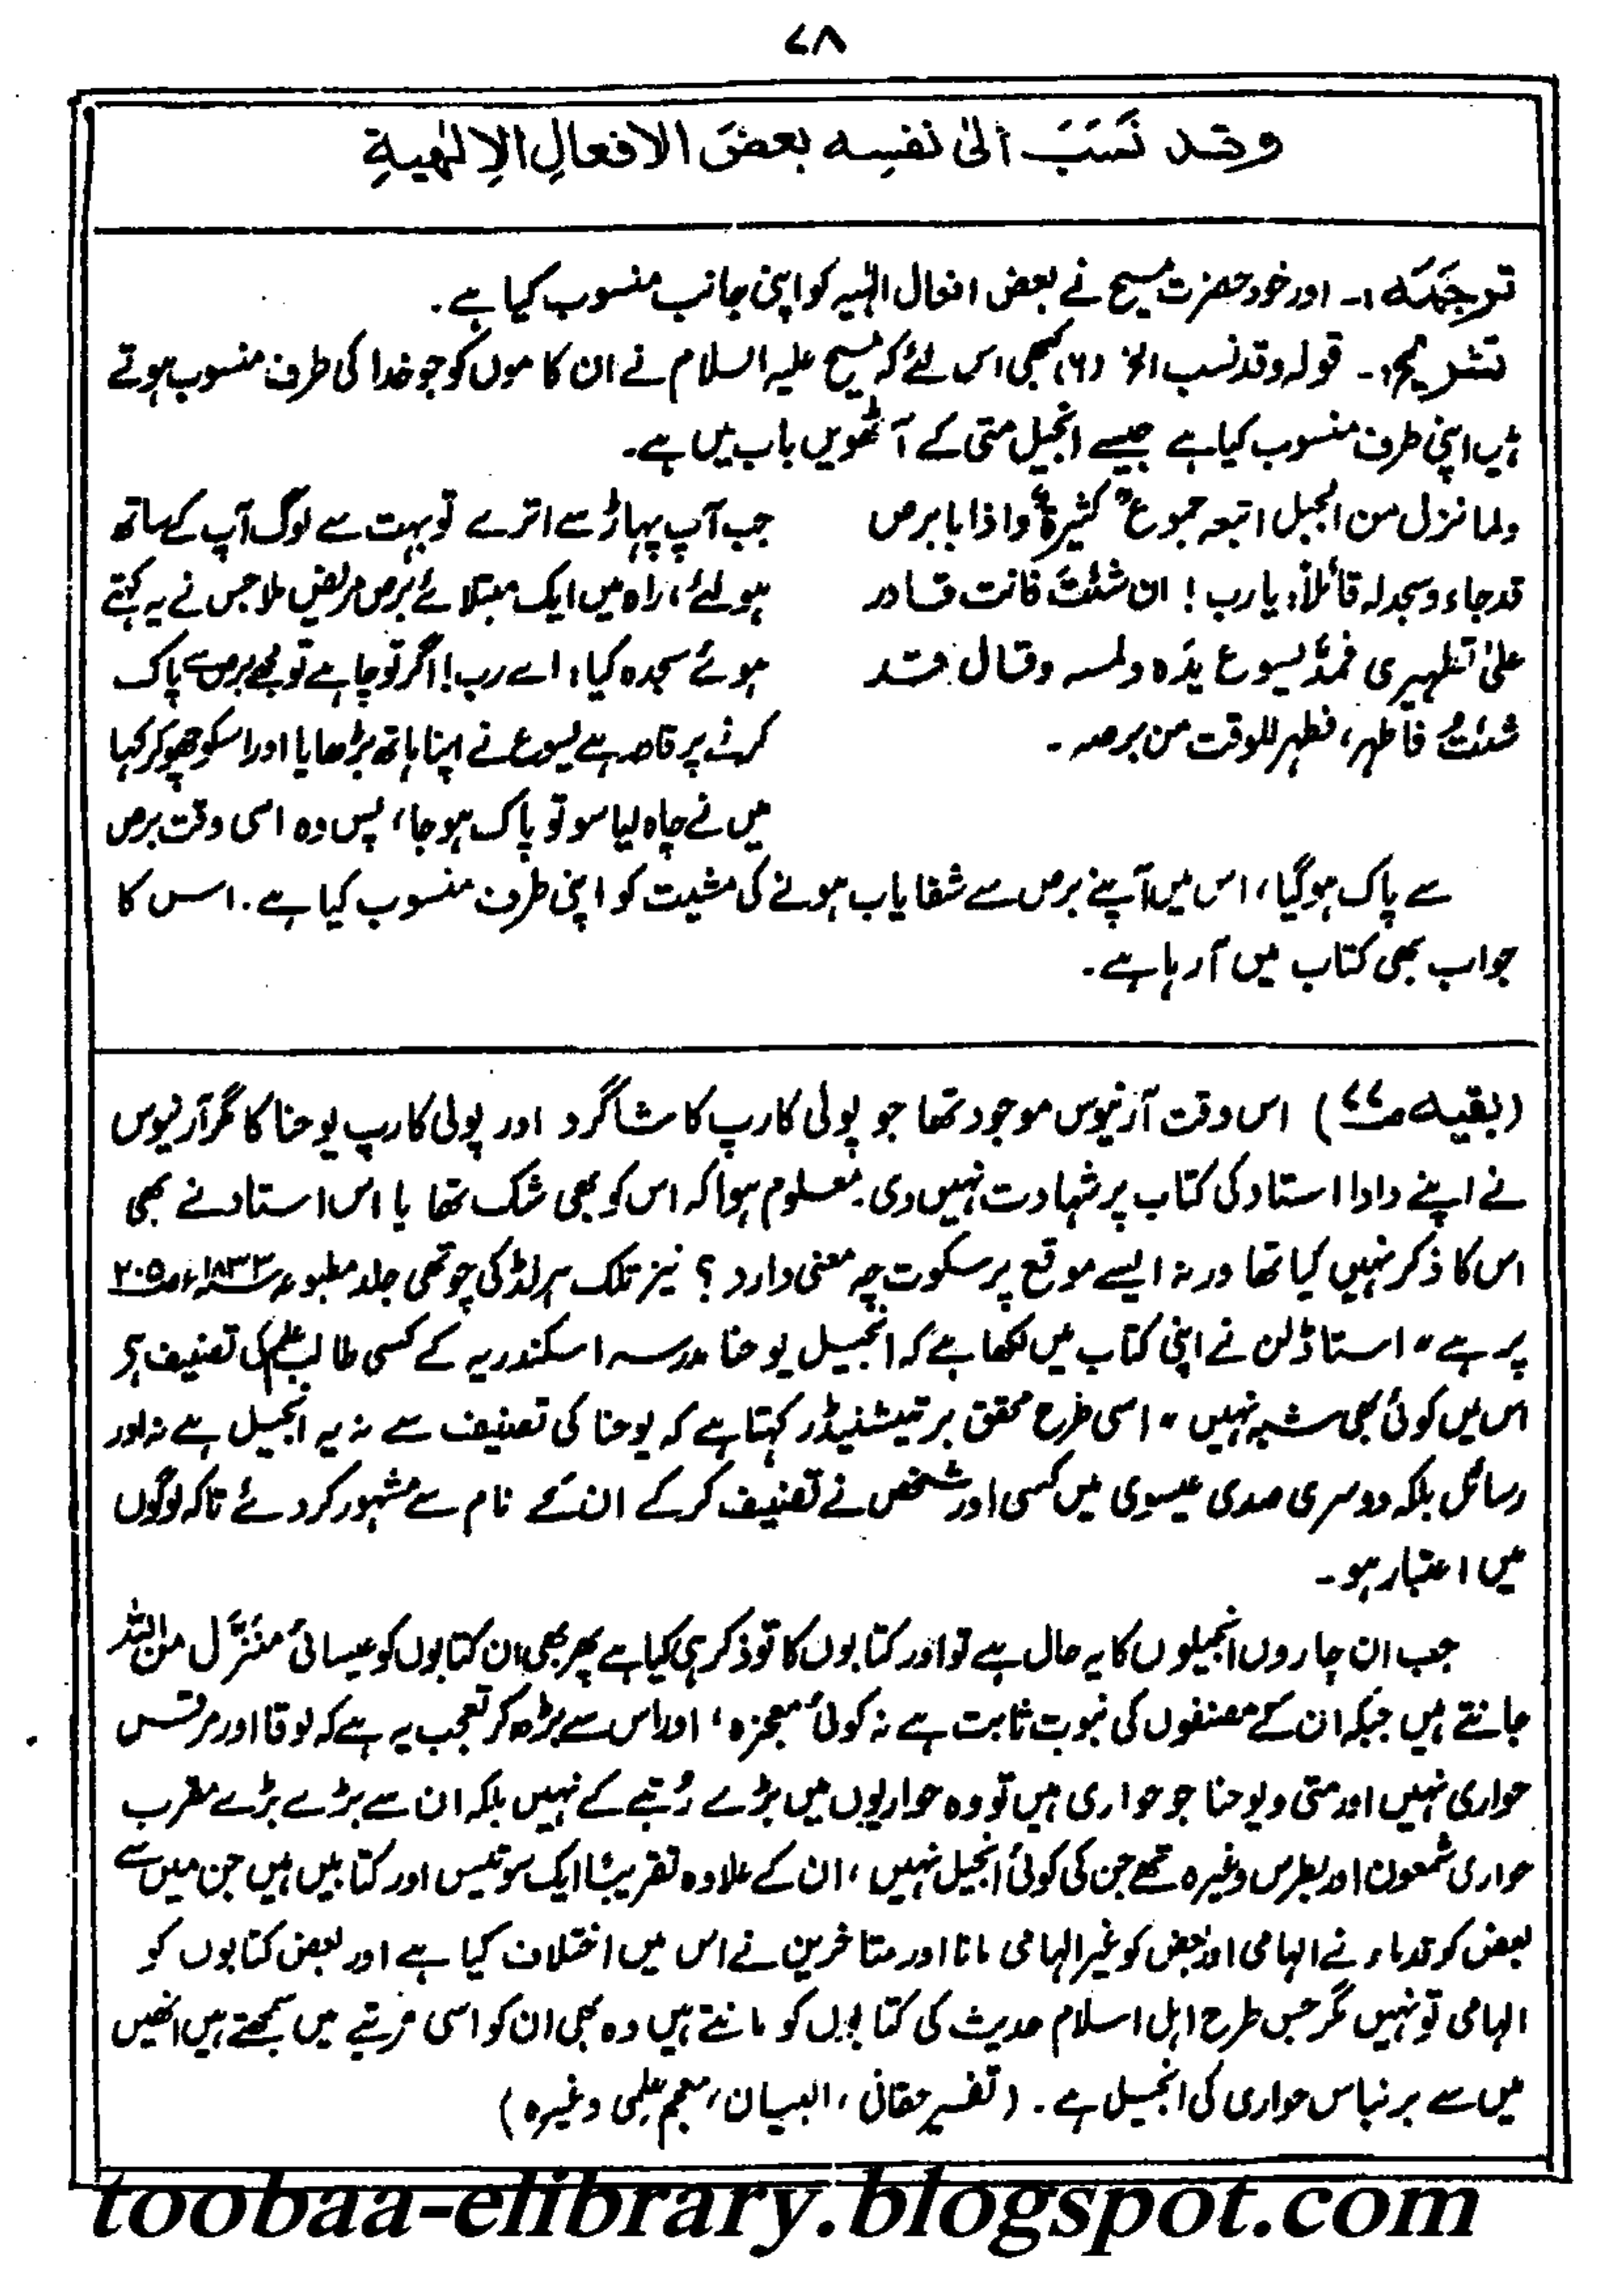 ۷۸
وقد نَسَبَ الیٰ نفسِه بعضَ الافعالِ الإلٰهيةِ
ترجَمَہ:۔ اور خود حضرت مسیح نے بعض افعال الٰہیہ کو اپنی جانب منسوب کیا ہے۔
تشریح:۔ قولہ وقد نسب الخ (۶) کبھی اس لئے کہ مسیح علیہ السلام نے ان کاموں کو جو خدا کی طرف منسوب ہوتے
ہیں اپنی طرف منسوب کیا ہے جیسے انجیل متی کے آٹھویں باب میں ہے۔
ولما نزل من الجبل اتبعہ جموعٌ کثیرۃٌ واذا بابرص
قد جاء وسجد لہ قائلاً: یا رب! ان شئتَ فانت قادر
علیٰ تطہیری فمدَّ یسوع یدَہ ولمسہ وقال قد
شئتُ فاطہر، فطہر للوقت من برصہ۔
جب آپ پہاڑ سے اترے تو بہت سے لوگ آپ کے ساتھ
ہولئے، راہ میں ایک مبتلائے برص مریض ملا جس نے یہ کہتے
ہوئے سجدہ کیا: اے رب! اگر تو چاہے تو مجھے برص سے پاک
کرنے پر قادر ہے یسوع نے اپنا ہاتھ بڑھایا اور اسکو چھو کر کہا
میں نے چاہ لیا سو تو پاک ہو جا، پس وہ اسی وقت برص
سے پاک ہو گیا، اس میں آپنے برص سے شفا یاب ہونے کی مشیت کو اپنی طرف منسوب کیا ہے۔ اس کا
جواب بھی کتاب میں آرہا ہے۔
(بقیہ ص۷۷) اس وقت آرنیوس موجود تھا جو پولی کارپ کا شاگرد اور پولی کارپ یوحنا کا مگر آرنیوس
نے اپنے دادا استاد کی کتاب پر شہادت نہیں دی۔ معلوم ہوا کہ اس کو بھی شک تھا یا اس استاد نے بھی
اس کا ذکر نہیں کیا تھا ورنہ ایسے موقع پر سکوت چہ معنی دارد؟ نیز تلک ہرلڈ کی چوتھی جلد مطبوعہ ۱۸۳۳ء ص۲۰۵
پر ہے "استاڈلن نے اپنی کتاب میں لکھا ہے کہ انجیل یوحنا مدرسہ اسکندریہ کے کسی طالب علم کی تصنیف ہے
اس میں کوئی بھی شبہ نہیں" اسی طرح محقق برتیشنیڈر کہتا ہے کہ یوحنا کی تصنیف سے نہ یہ انجیل ہے نہ اور
رسائل بلکہ دوسری صدی عیسوی میں کسی اور شخص نے تصنیف کر کے ان کے نام سے مشہور کر دئے تاکہ لوگوں
میں اعتبار ہو۔
جب ان چاروں انجیلوں کا یہ حال ہے تو اور کتابوں کا تو ذکر ہی کیا ہے پھر بھی ان کتابوں کو عیسائی منزَّل من اللہ
جانتے ہیں جبکہ ان کے مصنفوں کی نبوت ثابت ہے نہ کوئی معجزہ، اور اس سے بڑھ کر تعجب یہ ہے کہ لوقا اور مرقس
حواری نہیں اور متی و یوحنا جو حواری ہیں تو وہ حواریوں میں بڑے رُتبے کے نہیں بلکہ ان سے بڑے بڑے مقرب
حواری شمعون اور بطرس وغیرہ تھے جن کی کوئی انجیل نہیں، ان کے علاوہ تقریبًا ایک سو تیس اور کتابیں ہیں جن میں سے
بعض کو قدماء نے الہامی اور بعض کو غیر الہامی مانا اور متاخرین نے اس میں اختلاف کیا ہے اور بعض کتابوں کو
الہامی تو نہیں مگر جس طرح اہل اسلام حدیث کی کتابوں کو مانتے ہیں وہ بھی ان کو اسی مرتبے میں سمجھتے ہیں انھیں
میں سے برنباس حواری کی انجیل ہے۔ (تفسیر حقانی، البیان، معجم علمی وغیرہ)
toobaa-elibrary.blogspot.com